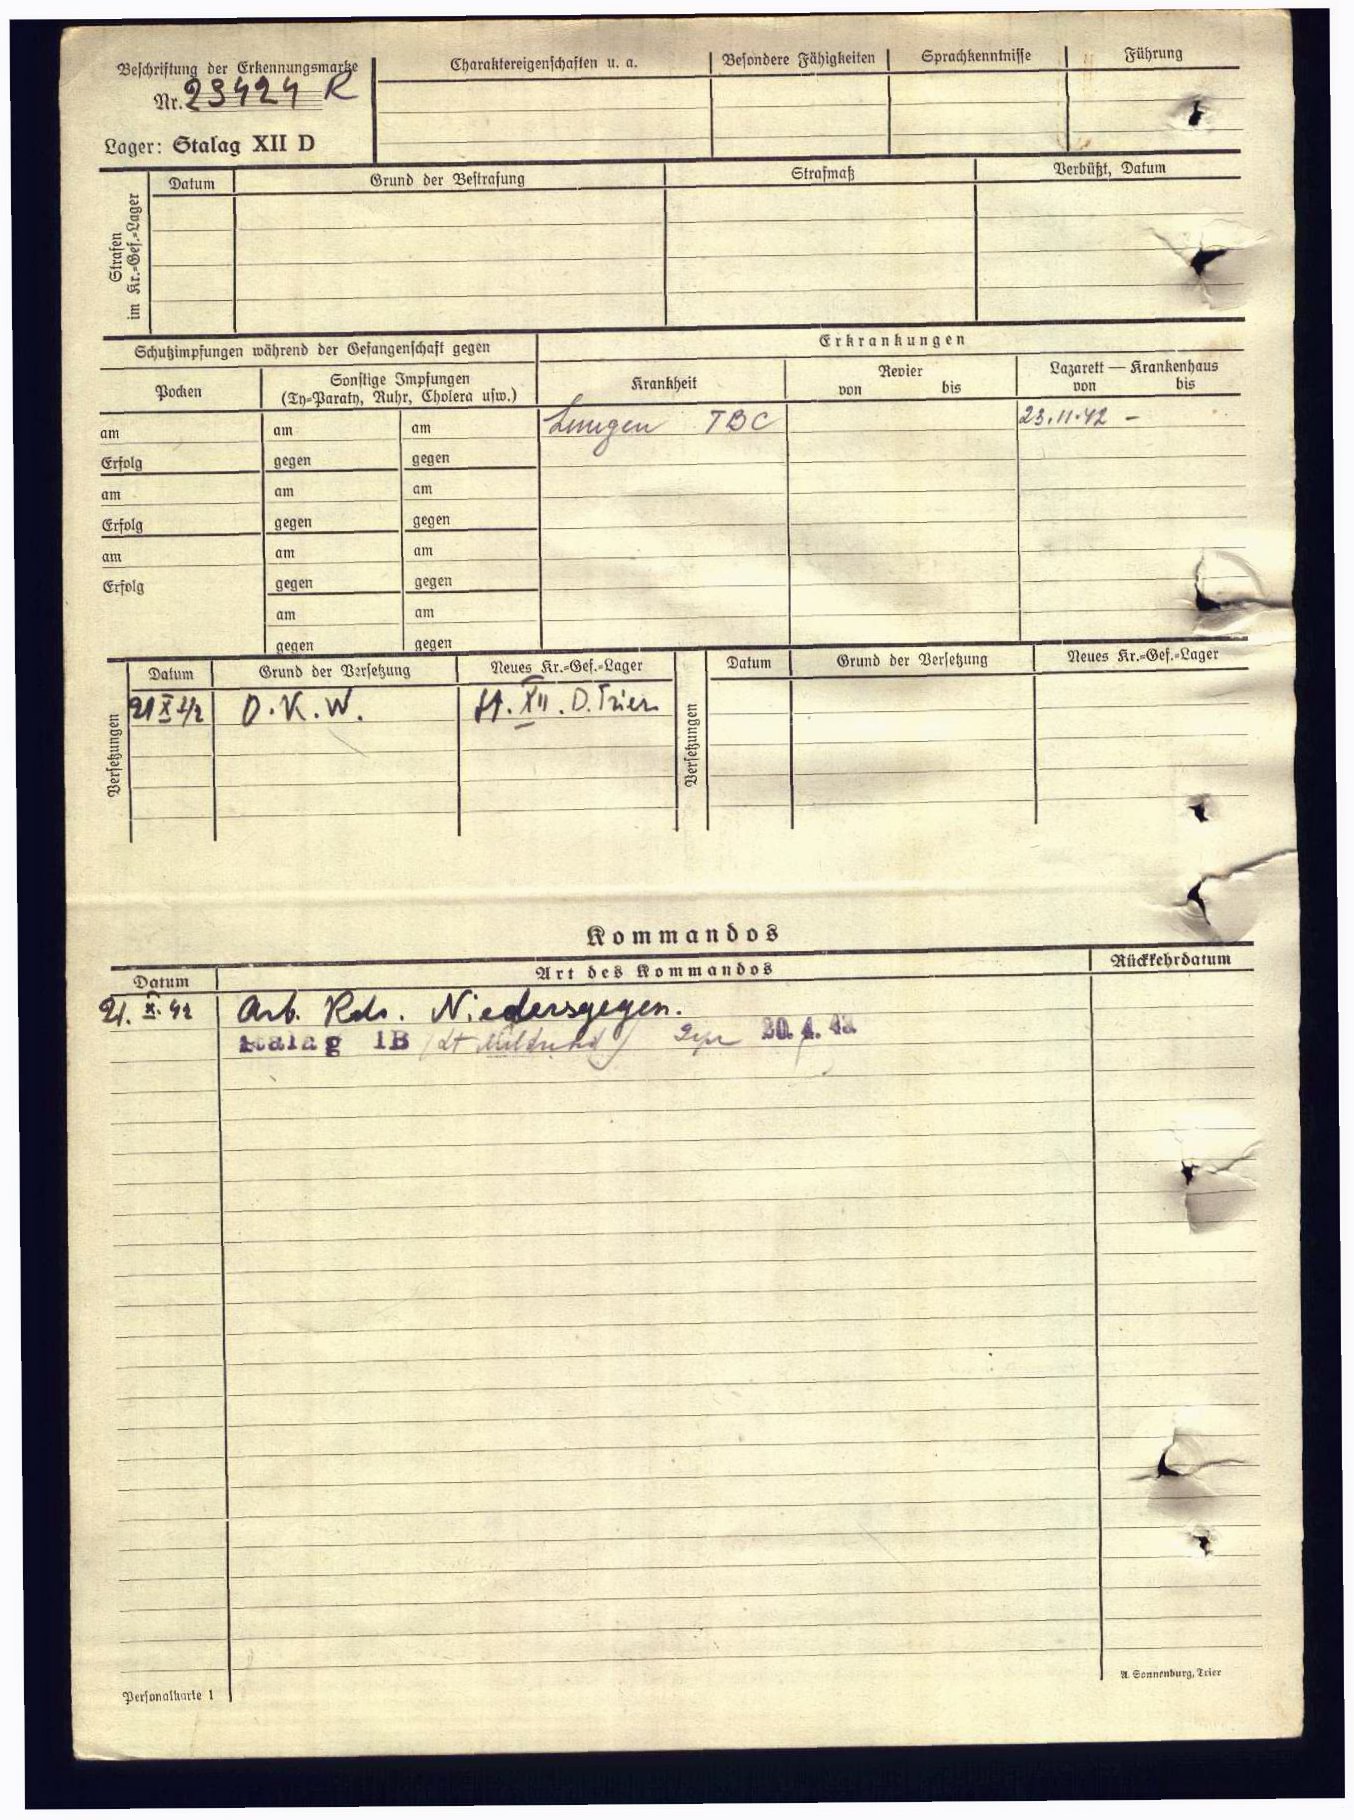 Beschriftung der Erkennungsmarke
Nr. 29424 R
Lager: Stalag XII D
Charaktereigenschaften u. a.
Besondere Fähigkeiten
Sprachkenntnisse
Führung
Strafen
im Kr.=Gef.=Lager
Datum
Grund der Bestrafung
Strafmaß
Verbüßt, Datum
Schutzimpfungen während der Gefangenschaft gegen
Erkrankungen
Pocken
Sonstige Impfungen
(Ty=Paraty, Ruhr, Cholera usw.)
Krankheit
Revier
von bis
Lazarett — Krankenhaus
von bis
am am am Lungen TBC 23.11.42 -
Erfolg gegen gegen
am am am
Erfolg gegen gegen
am am am
Erfolg gegen gegen
am am
gegen gegen
Versetzungen
Datum Grund der Versetzung Neues Kr.=Gef.=Lager
21 X 42 O.K.W. St. XII. D. Trier
Versetzungen
Datum Grund der Versetzung Neues Kr.=Gef.=Lager
Kommandos
Datum Art des Kommandos Rückkehrdatum
21. X. 42 Arb. Kdo. Niedersgegen.
Stalag 1B 20. 4. 43
Personalkarte 1
A. Sonnenburg, Trier